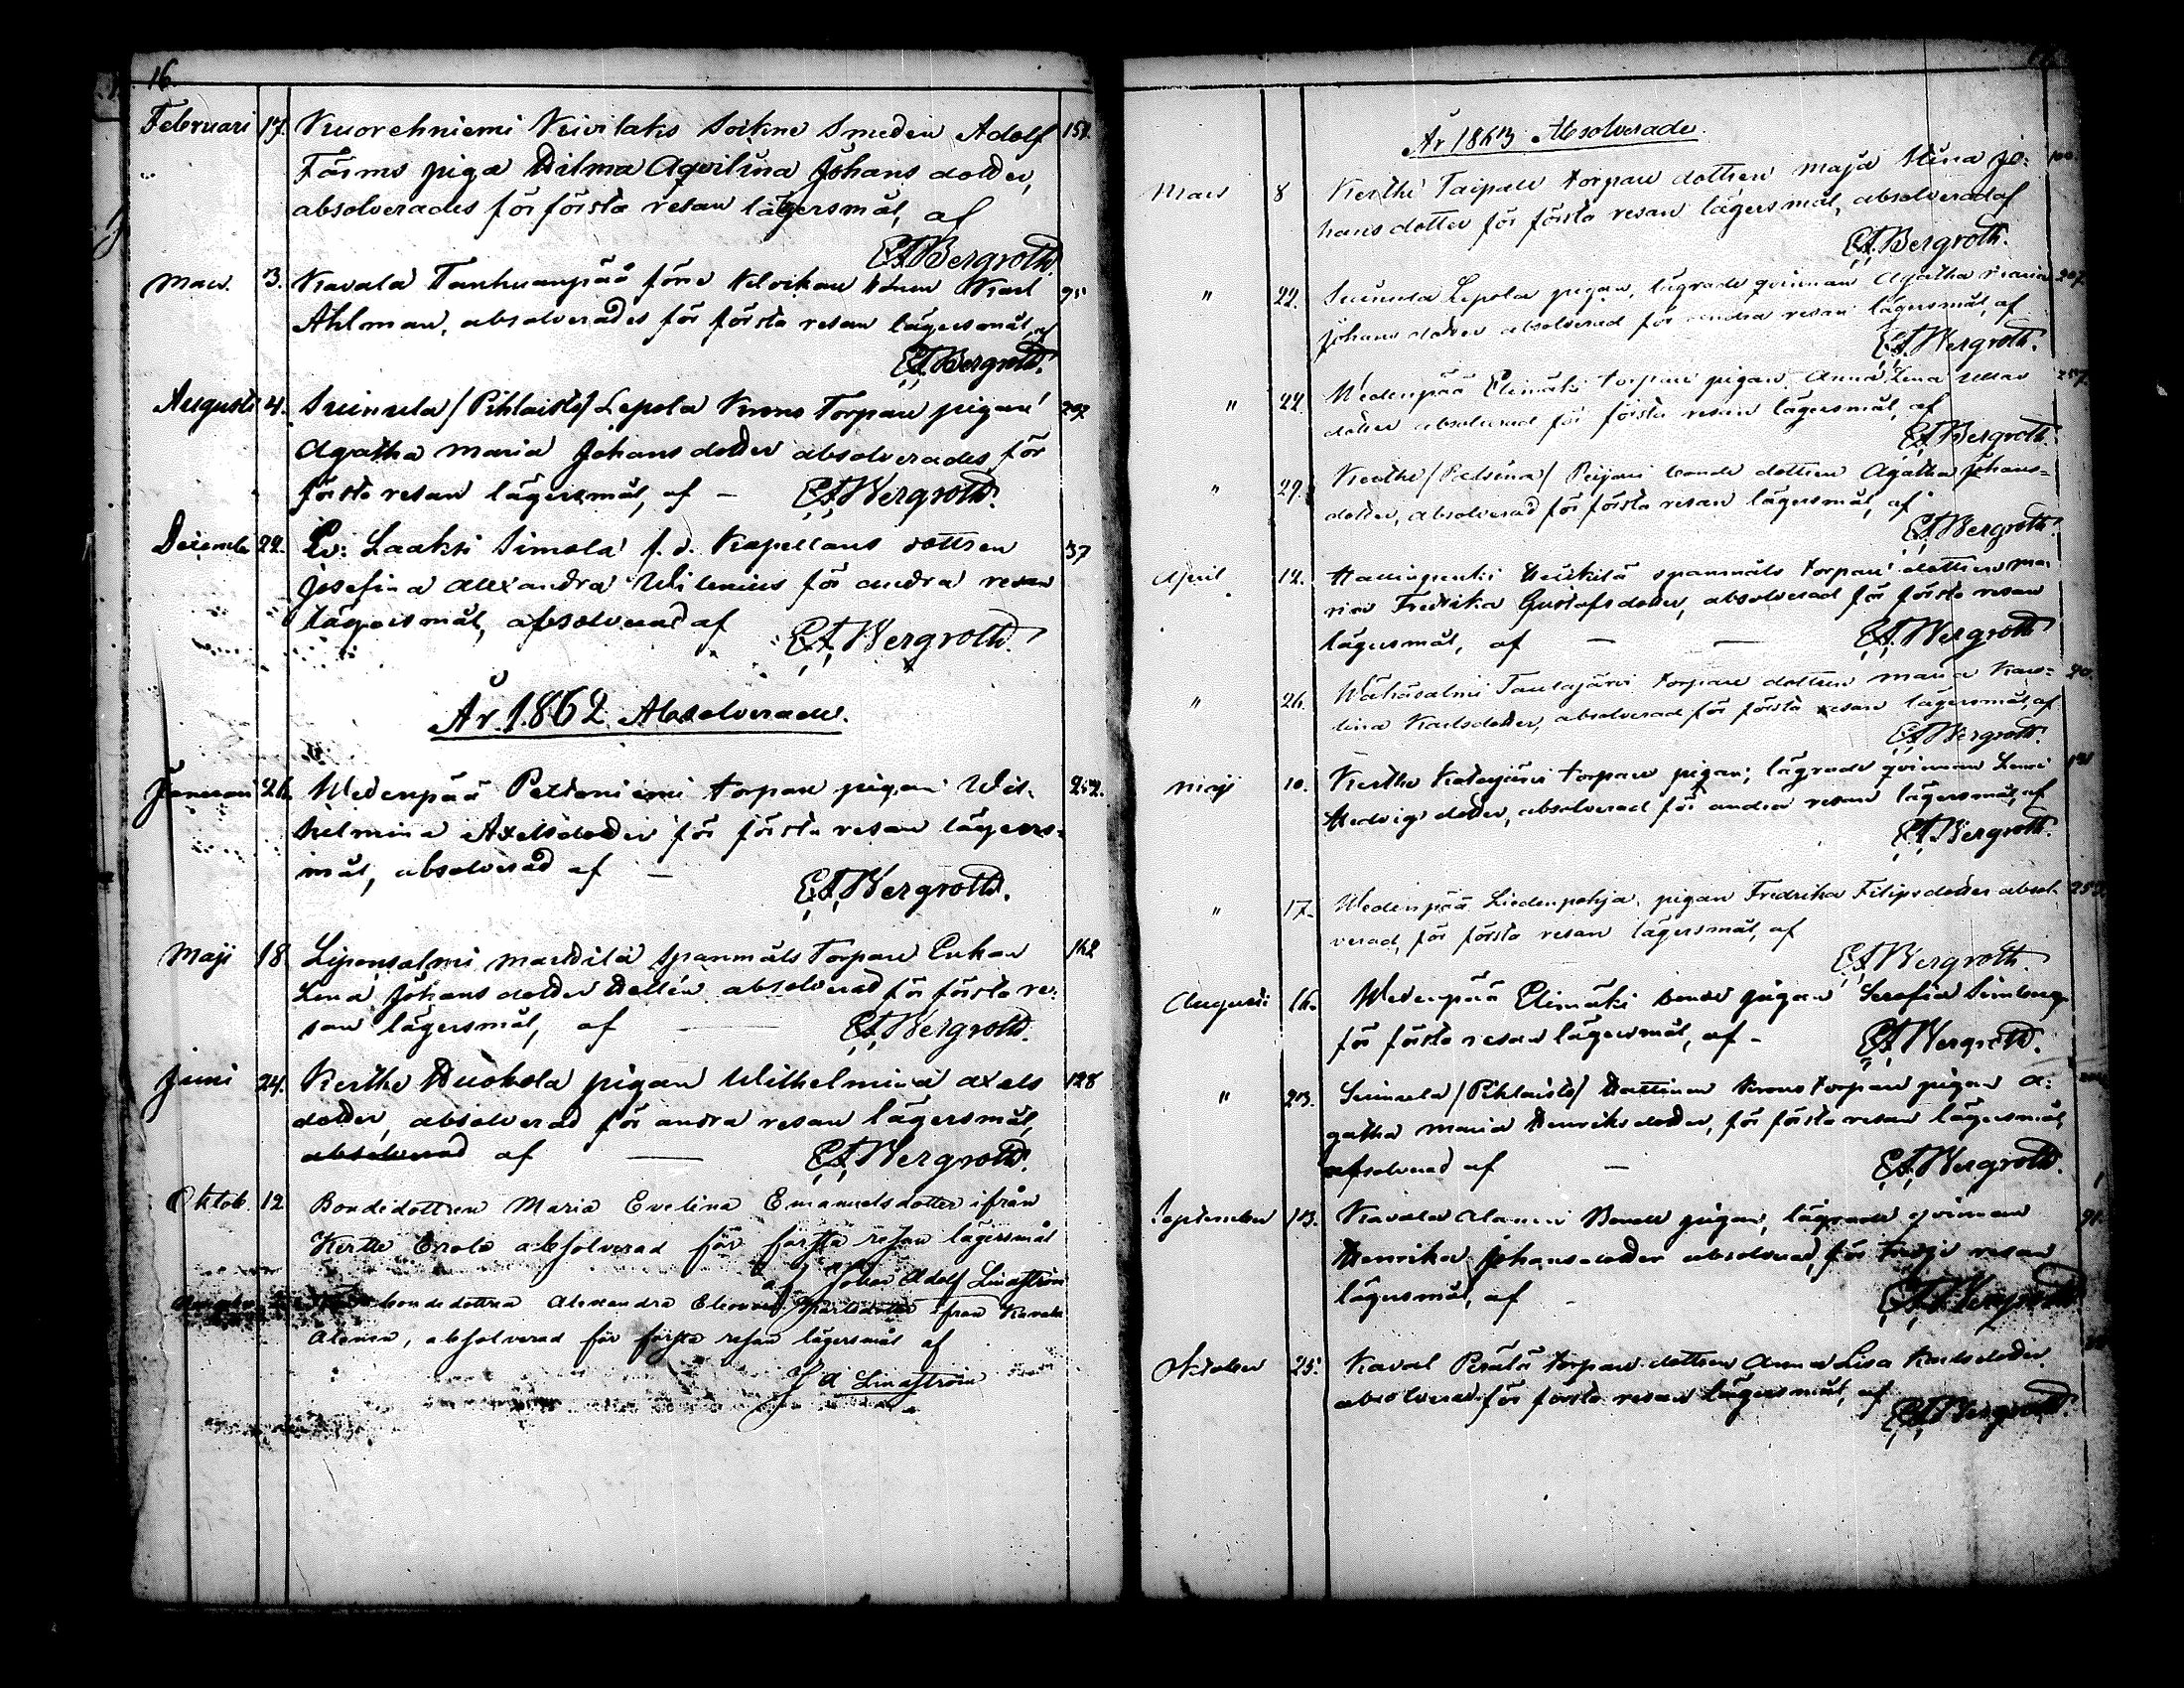 16
Februari 17. Kuorehniemi Kivilaks Soikne Smeden Adolf 151.
Färms piga Hilma Aqvilina Johans dotter,
absolverades för första resan lägersmål, af
E A Bergroth.
Mars 3. Kavala Tanhuanpää Karl 95
Ahlman, absolverades för första resan lägersmål, af
E A Bergroth.
Augusti 4. Suinula /Pihlaisto/ Lepola Krono Torpare pigan 207
Agatha Maria Johans dotter absolverades för
första resan lägersmål, af – E A Bergroth.
December 22. Laaksi Simola f. d. Kapellans dottren 37
Josefina Alexandra Wilenius för andra resan
lägersmål, absolverad af E A Bergroth.
År 1862 Absolverade.
Januari 26. Wedenpää Pettoniemi torpare pigan Wil-
helmina Axelsdotter för första resan lägers-
mål, absolverad af – E A Bergroth.
Maji 18. Liponsalmi Marttila Spanmåls Torpare Enkan 162
Lena Johans dotter Hellén absolverad för första re-
san lägersmål, af – E A Bergroth.
Juni 24. Kerthe Huokola pigan Wilhelmina Axels 128
dotter, absolverad för andra resan lägersmål,
absolverad af – E A Bergroth.
Oktob. 12 Bondedottren Maria Evelina Emanuelsdotter ifrån
Kertte Erola absolverad för första resan lägersmål
af Johan Adolf Lindström
bondedottren Alexandra från Kavala
Alanen, absolverad för första resan lägersmål af
J A Lindström
År 1863 Absolverade.
Mars 8 Kerthe Taipale torpare dottren Maja Stina Jo-
hans dotter för första resan lägersmål, absolverad af
E A Bergroth.
" 22. Suinula Lepola pigan, lägrade qvinnan Agatha Maria 207.
Johans dotter absolverad för andra resan lägersmål, af
E A Bergroth.
" 22. Wedenpää Elimäki torpare pigan Anna Lena
dotter absolverad för första resan lägersmål, af
E A Bergroth.
" 29. Kerthe Peijari bonde dottren Agatha Johans-
dotter, absolverad för första resan lägersmål, af
E A Bergroth.
April 12. Heikkilä spanmåls torpare dottren Ma-
ria Fredrika Gustafsdotter, absolverad för första resan
lägersmål, af – – E A Bergroth
" 26. Wähäsalmi Taulajärvi torpare dottren Maria Karo-
lina Karlsdotter, absolverad för första resan lägersmål, af
E A Bergroth.
Maji 10. Kerthe Katajärvi torpare pigan, lägrade qvinnan
Hedvigs dotter, absolverad för andra resan lägersmål, af
E A Bergroth.
" 17. Wedenpää Liedenpohja pigan Fredrika Filipsdotter absol-
verad, för första resan lägersmål, af
E A Bergroth.
Augusti 16. Wedenpää Elimäki bonde pigan Serafia Simberg
för första resan lägersmål, af – E A Bergroth.
" 23. Suinula /Pihlaisto/ Hattinen Krono torpare pigan A-
gatha Maria Henriksdotter, för första resan lägersmål,
absolverad af – E A Bergroth.
September 13. Kavala Alanen Bonde pigan, lägrade qvinnan 91.
Henrika Johansdotter absolverad, för tredje resan
lägersmål, af – E A Bergroth
Oktober 25. Kaval Perälä torpare dottren Anna Lisa Karlsdotter
absolverad för första resan lägersmål, af
E A Bergroth.